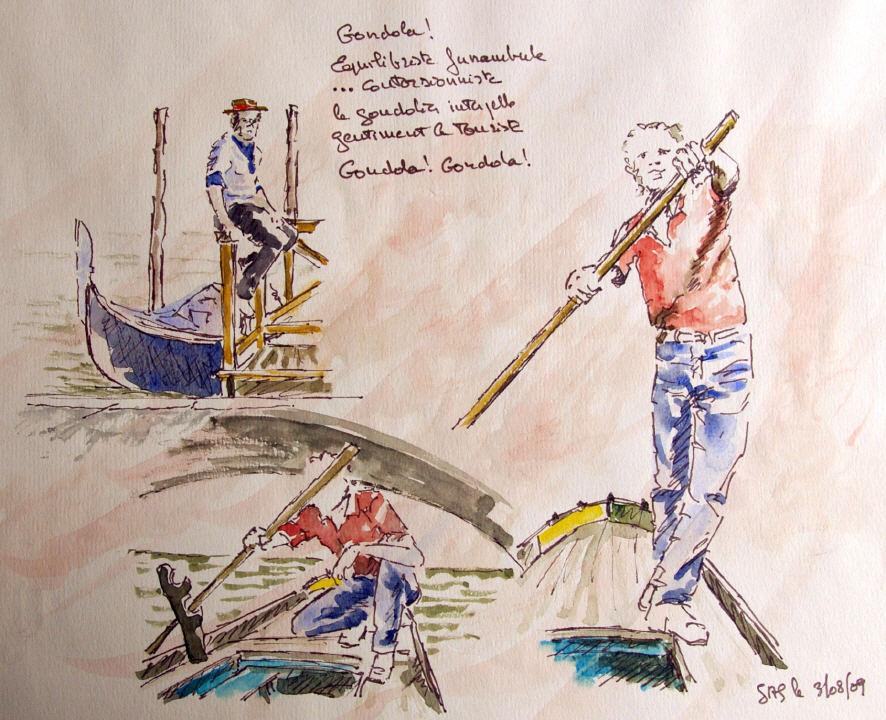 Gondola!
Equilibriste funambule
... contorsionniste
le gondolier interpelle
gentiment le Touriste
Gondola! Gondola!
le 3/08/09